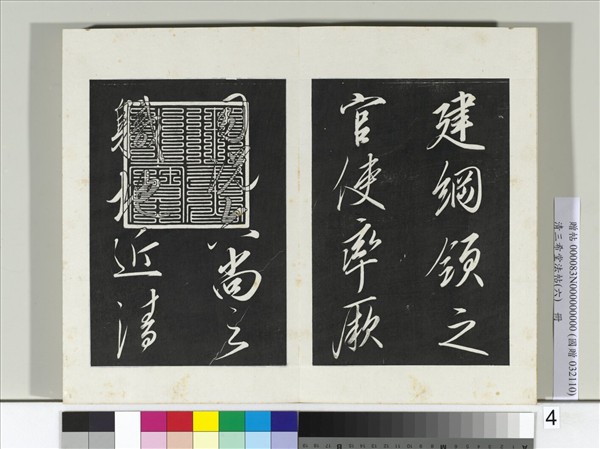 建綱領之
官使率厥
司六尚之
職地近清
贈帖 000083N000000000 (國贈 032110)
清三希堂法帖(六) 冊
4